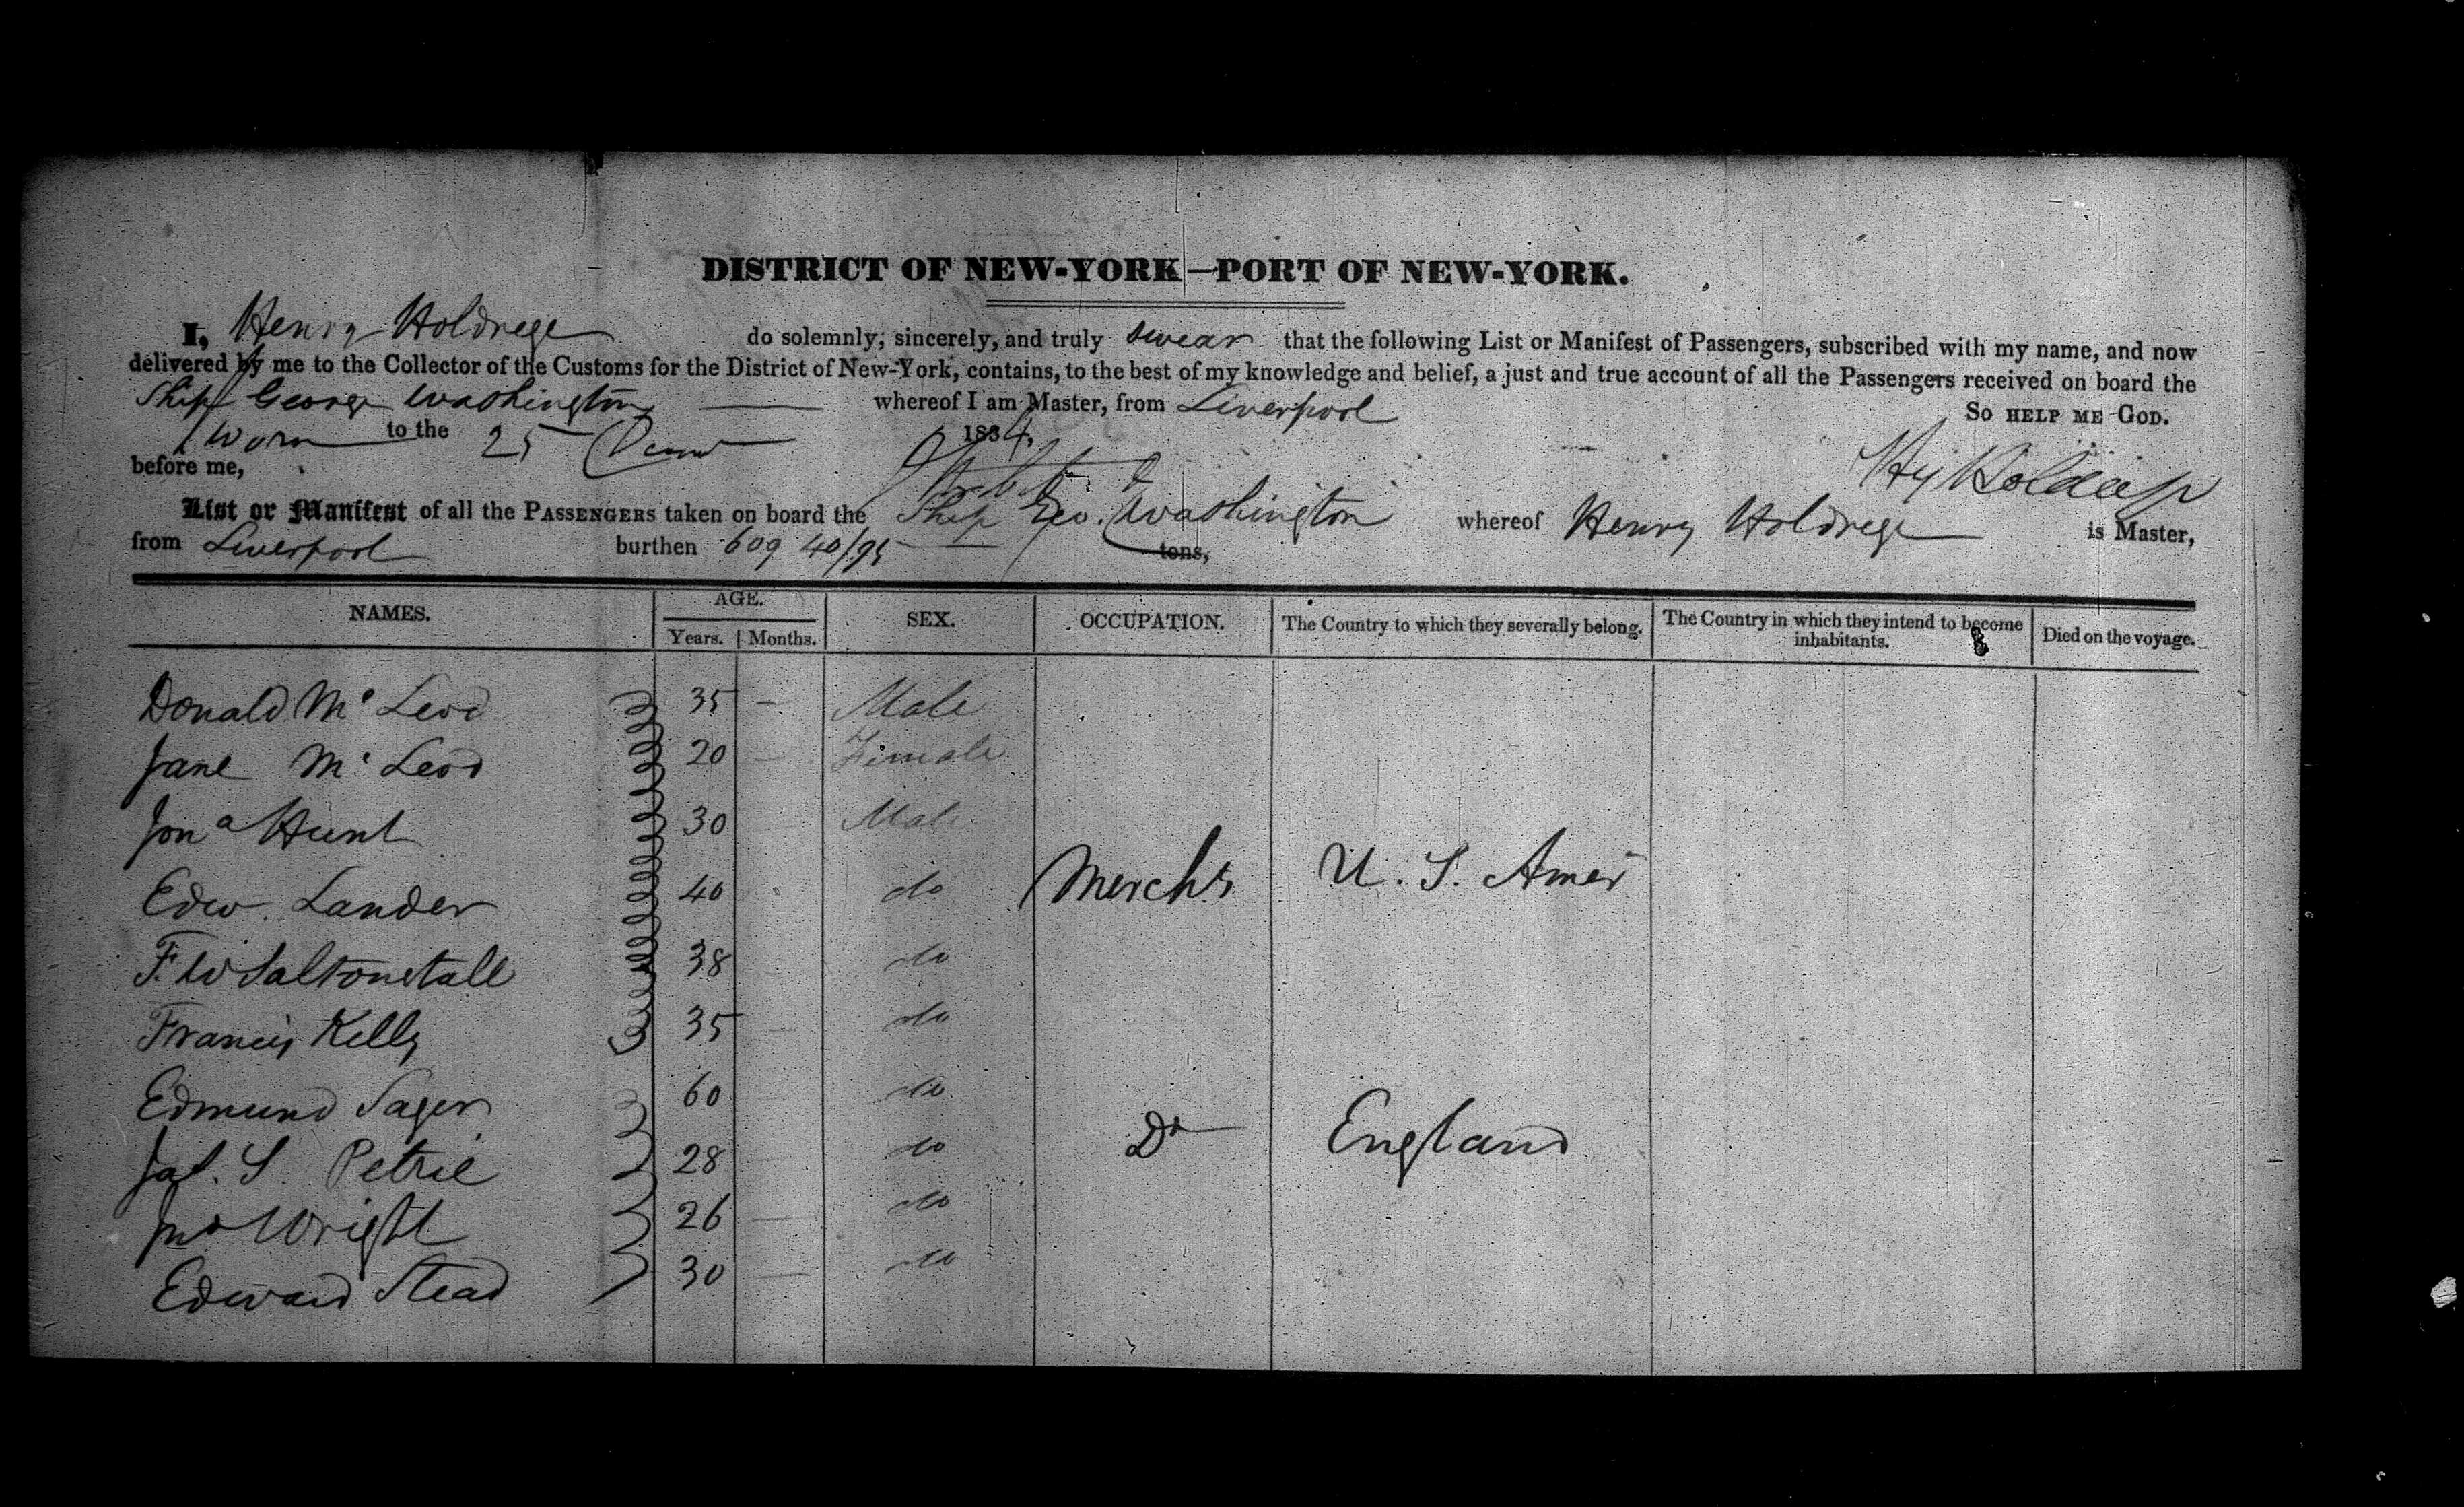 DISTRICT OF NEW-YORK—PORT OF NEW-YORK.
I, Henry Holdrege do solemnly, sincerely, and truly swear that the following List or Manifest of Passengers, subscribed with my name, and now
delivered by me to the Collector of the Customs for the District of New-York, contains, to the best of my knowledge and belief, a just and true account of all the Passengers received on board the
Ship George Washington whereof I am Master, from Liverpool
So HELP ME GOD.
Sworn to the 25 1834.
before me,
Hy Holdrege
List or Manifest of all the PASSENGERS taken on board the Ship Geo. Washington whereof Henry Holdrege is Master,
from Liverpool burthen 609 40/95 tons,
NAMES. AGE. Years. Months. SEX. OCCUPATION. The Country to which they severally belong. The Country in which they intend to become inhabitants. Died on the voyage.
Donald Mc Leod 35 — Male
Jane Mc Leod 20 — Female
Jona Hunt 30 Male
Edw. Lander 40 do Merchts U. S. Amer
F. W Saltonstall 38 do
Francis Kelly 35 — do
Edmund Sager 60 do
Jas. S. Petrie 28 do Do England
Jno Wright 26 — do
Edward Stead 30 — do